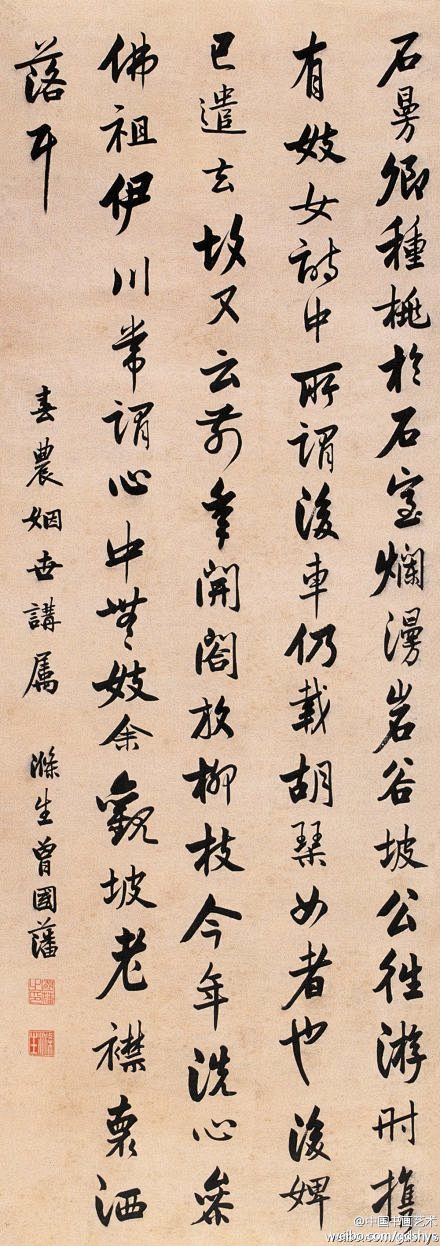 石曼卿種桃於石室爛漫岩谷坡公往游时攜
有妓女詩中所謂後車仍載胡琴女者也後婢
已遣去故又云前年開閤放柳枝今年洗心參
佛祖伊川常謂心中無妓余觀坡老襟裏洒
落耳
春農姻世講属 滌生曾國藩
@中国书画艺术
weibo.com/gdshys